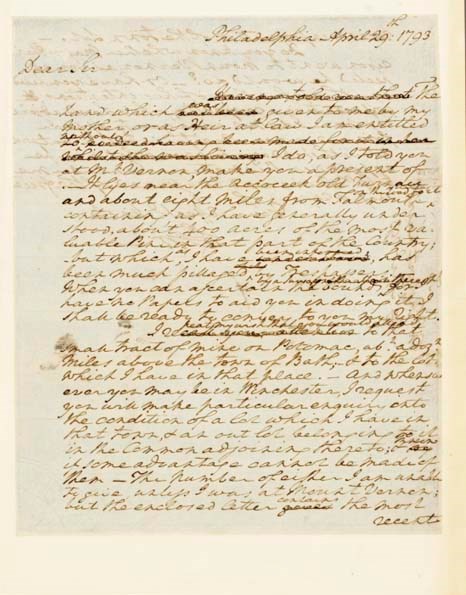 Philadelphia April 29th. 1793
Dear Sir
The
Land which was given to me by my
Mother, or as Heir at law I am entitled
I do, as I told you
at Mt. Vernon, make you a present of
— It lyes near the Accoceek old Furnace
and about eight miles from Falmouth,
containing as I have generally under
stood, about 400 acres of the most va-
luable Pine in that part of the Country;
but which, as I have been informed, has
been much pillaged by Trespassers.
When you can ascertain
have no Papers to aid you in doing it, I
shall be ready to convey to you my Right.
I to that
small tract of mine on Potomac, abt. a dozn.
Miles above the town of Bath, & to the lots
which I have in that place. And whenso
ever you may be in Winchester, I request
you will make particular enquiry into
the condition of a lot which I have in
that town, & an out lot belonging to it
in the Common adjoining thereto;
if some advantage cannot be made of
them — The number of either I am unable
to give unless I was at Mount Vernon;
but the enclosed letter contains the most
recent